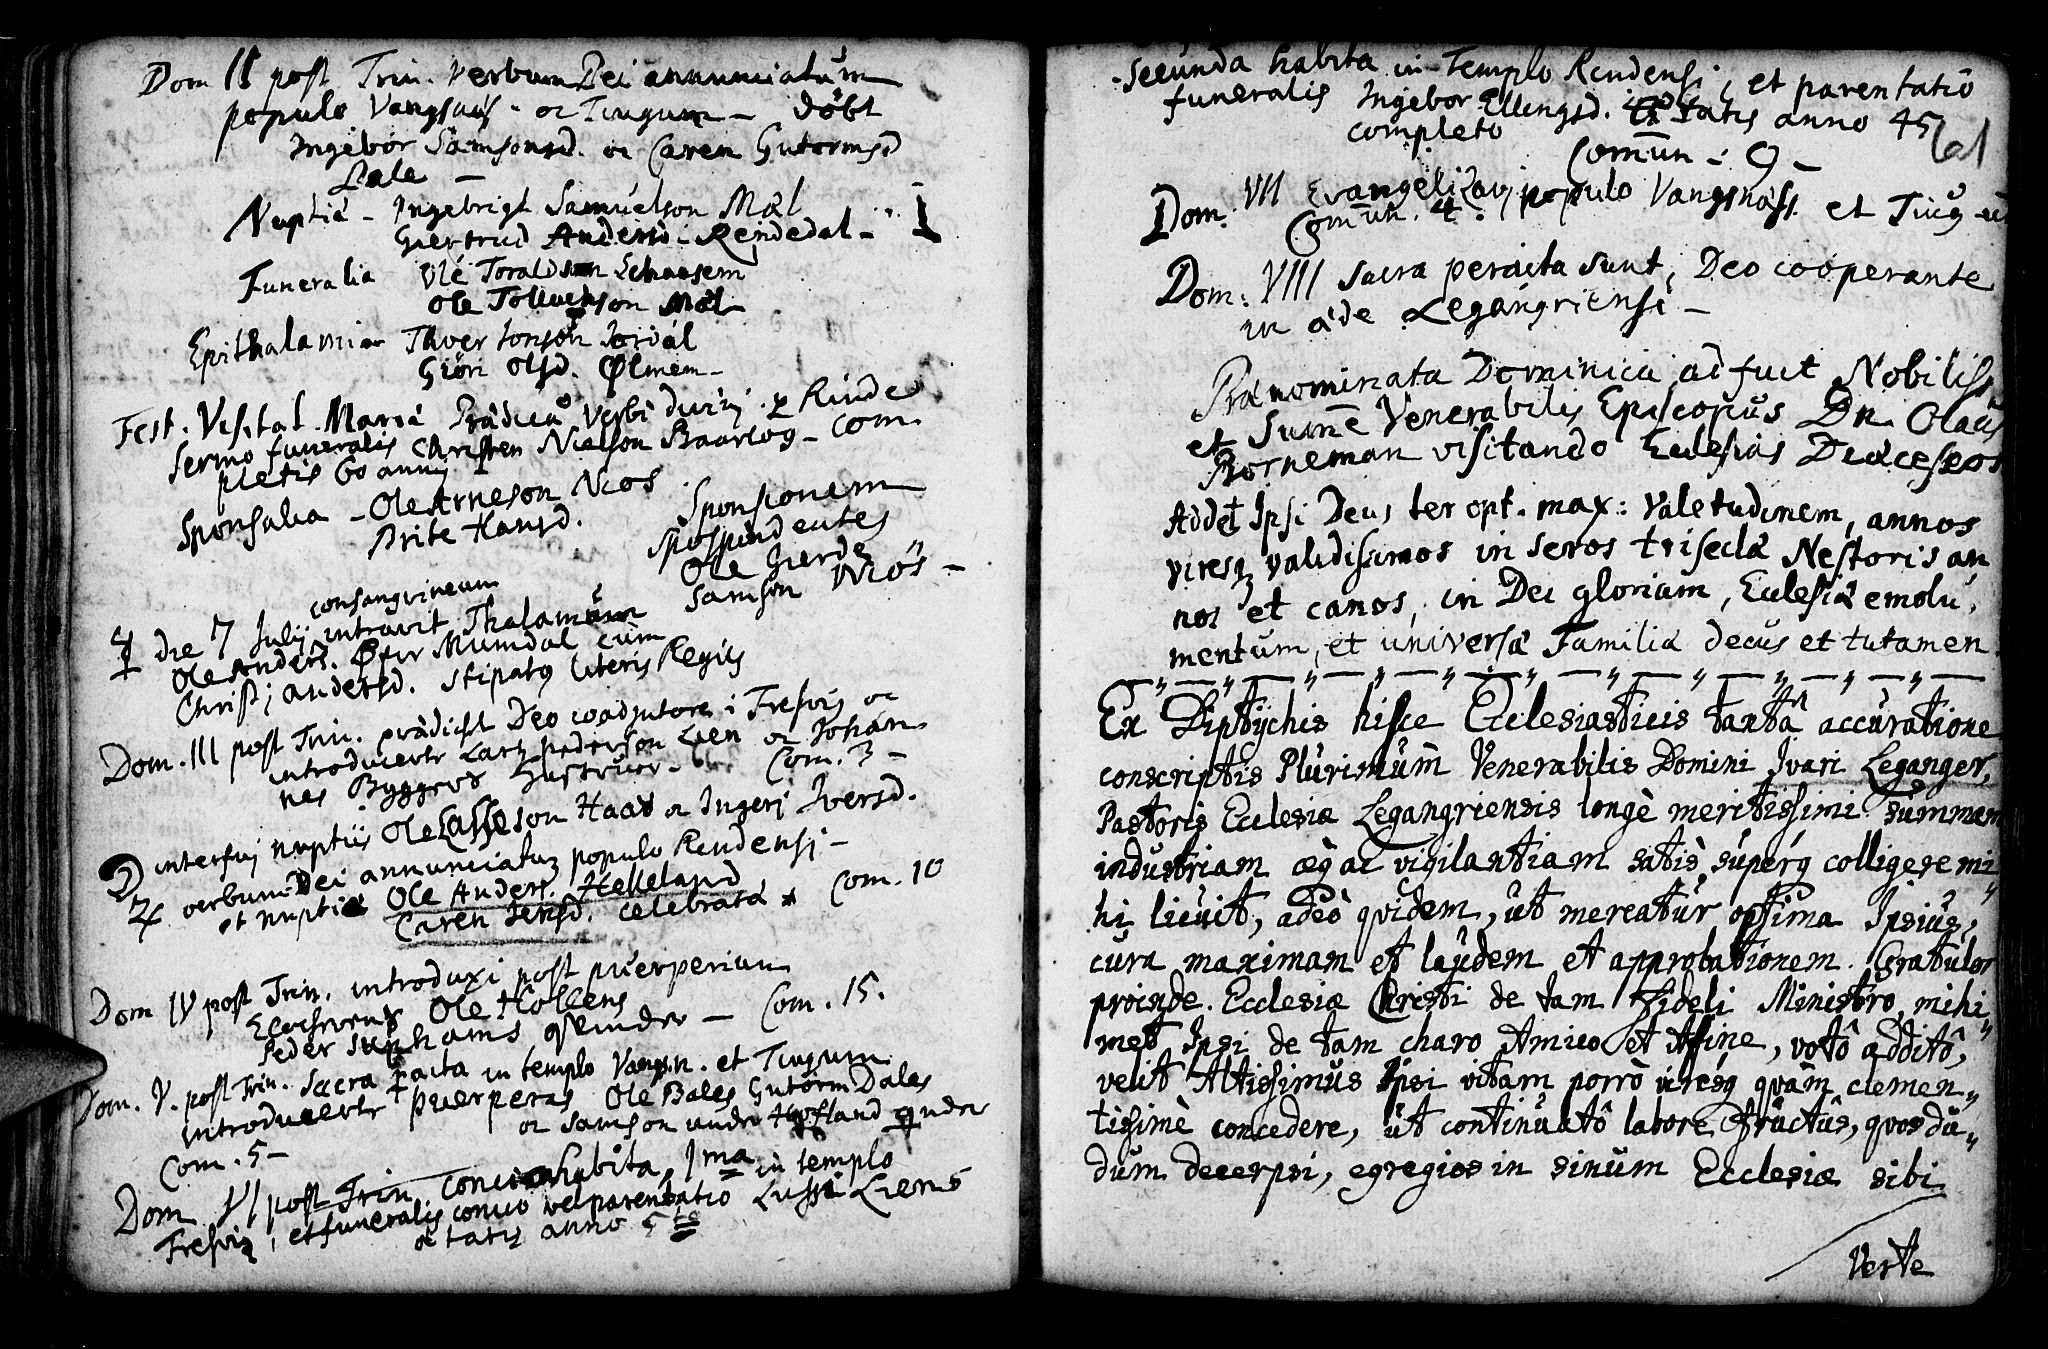 Dom II post Trin. Verbum Dei annunciatum
populo Vangsnes - oc Tiugum - döbt
Ingebör Samsonsd. oc Caren Gutormsd
Dale -
Nuptiæ - Ingebrigt Samuelson Mæl
Giertrud Andersd - Rendedal -
Funeralia Ole Toraldson
Ole Mæl
Epithalamia Iver Jonson
Giöri Olsd. Ølmem -
Fest. Visitat. Mariæ Verbi Divinj Rinde
Sermo funeralis Christen Nielson Baarlog - com
pletis 60 annis
Sponsalia - Ole Arneson Niös
Brite Hansd.
Sponsionem
Spospendentes
Ole
Samson Niös -
consangvineum
♀ die 7 Julij intravit Thalamum
Ole Anders. Øfir Mumdal cum
Christj andersd. stipatq literis Regijs
Dom. III post Trin. prædicat Deo coadjutore i Fresvig oc
introducertr Lars pederson Lien oc Johan
nes Byggers Hustruer - Com. 3 -
☽ interfuj nuptiis Ole Lasseson Haas oc Ingerj Iversd.
♃ verbum Dei annunciatum populo Rindensj -
et nuptiæ Ole Anders. Helleland
Caren Jensd. celebrata Com. 10
Dom IV post Trin. introduxi post puerperium
Ole Hollens
Peder qvinder - Com. 15.
Dom. V. post Trin. Sacra pacta in templo Vangsn. et Tiugum
introducertr puerperas Ole Bales Gutorm Dales
oc Samson Hofland qvinder
Com. 5 -
Dom VI post Trin. concio habita, Ima in templo
Fresvig, et funeralis concio vel parentatio Liens
ætatis anno 5
secunda habita in Templo Rendensi, et parentatio
funeralis Ingebor Ellingsd. ætatis anno 45
completo 61
Comun - 9 -
Dom: VII Evangelizavj populo Vangsnæss. et Tiug
Comun. 4.
Dom: VIII Sacra peracta sunt, Deo cooperante
in æde Legangriensi -
Prænominata Dominica adfuit Nobiliss
et Sume Venerabilis Episcopus Dn. Olaus
Borneman visitando Eclesias Diæceseos
Addet Ipsi Deus ter opt. max: valetudinem, annos
viresq validissimos in seros trisecla Nestoris an
nos et canos, in Dei gloriam, Eclesiæ emolu,
mentum, et universæ Familiæ decus et tutamen.
Ex Diptychis hisce Ecclesiasticis tantâ accuratione
conscriptis Plurimùm Venerabilis Domini Ivari Leganger,
Pastoris Ecclesiæ Legangriensis longè meritissimi summam
industriam æq ac vigilantiam satis superq colligere mi„
hi licuit, adeò qvidem, ut mereatur optima Ipsius,
cura maximam et laudem et approbationem. Gratulor
proinde Ecclesiæ Christi de tam Fideli Ministro, mihi„
met Ipsi de tam charo Amico et Affine, votô additô,
velit Altissimus Ipsi vitam porrò viresq quàm clemen„
tissimè concedere, ut continuatô labore fructus, quos du„
dum decerpsi, egregios in sinum Ecclesiæ sibi
Verte